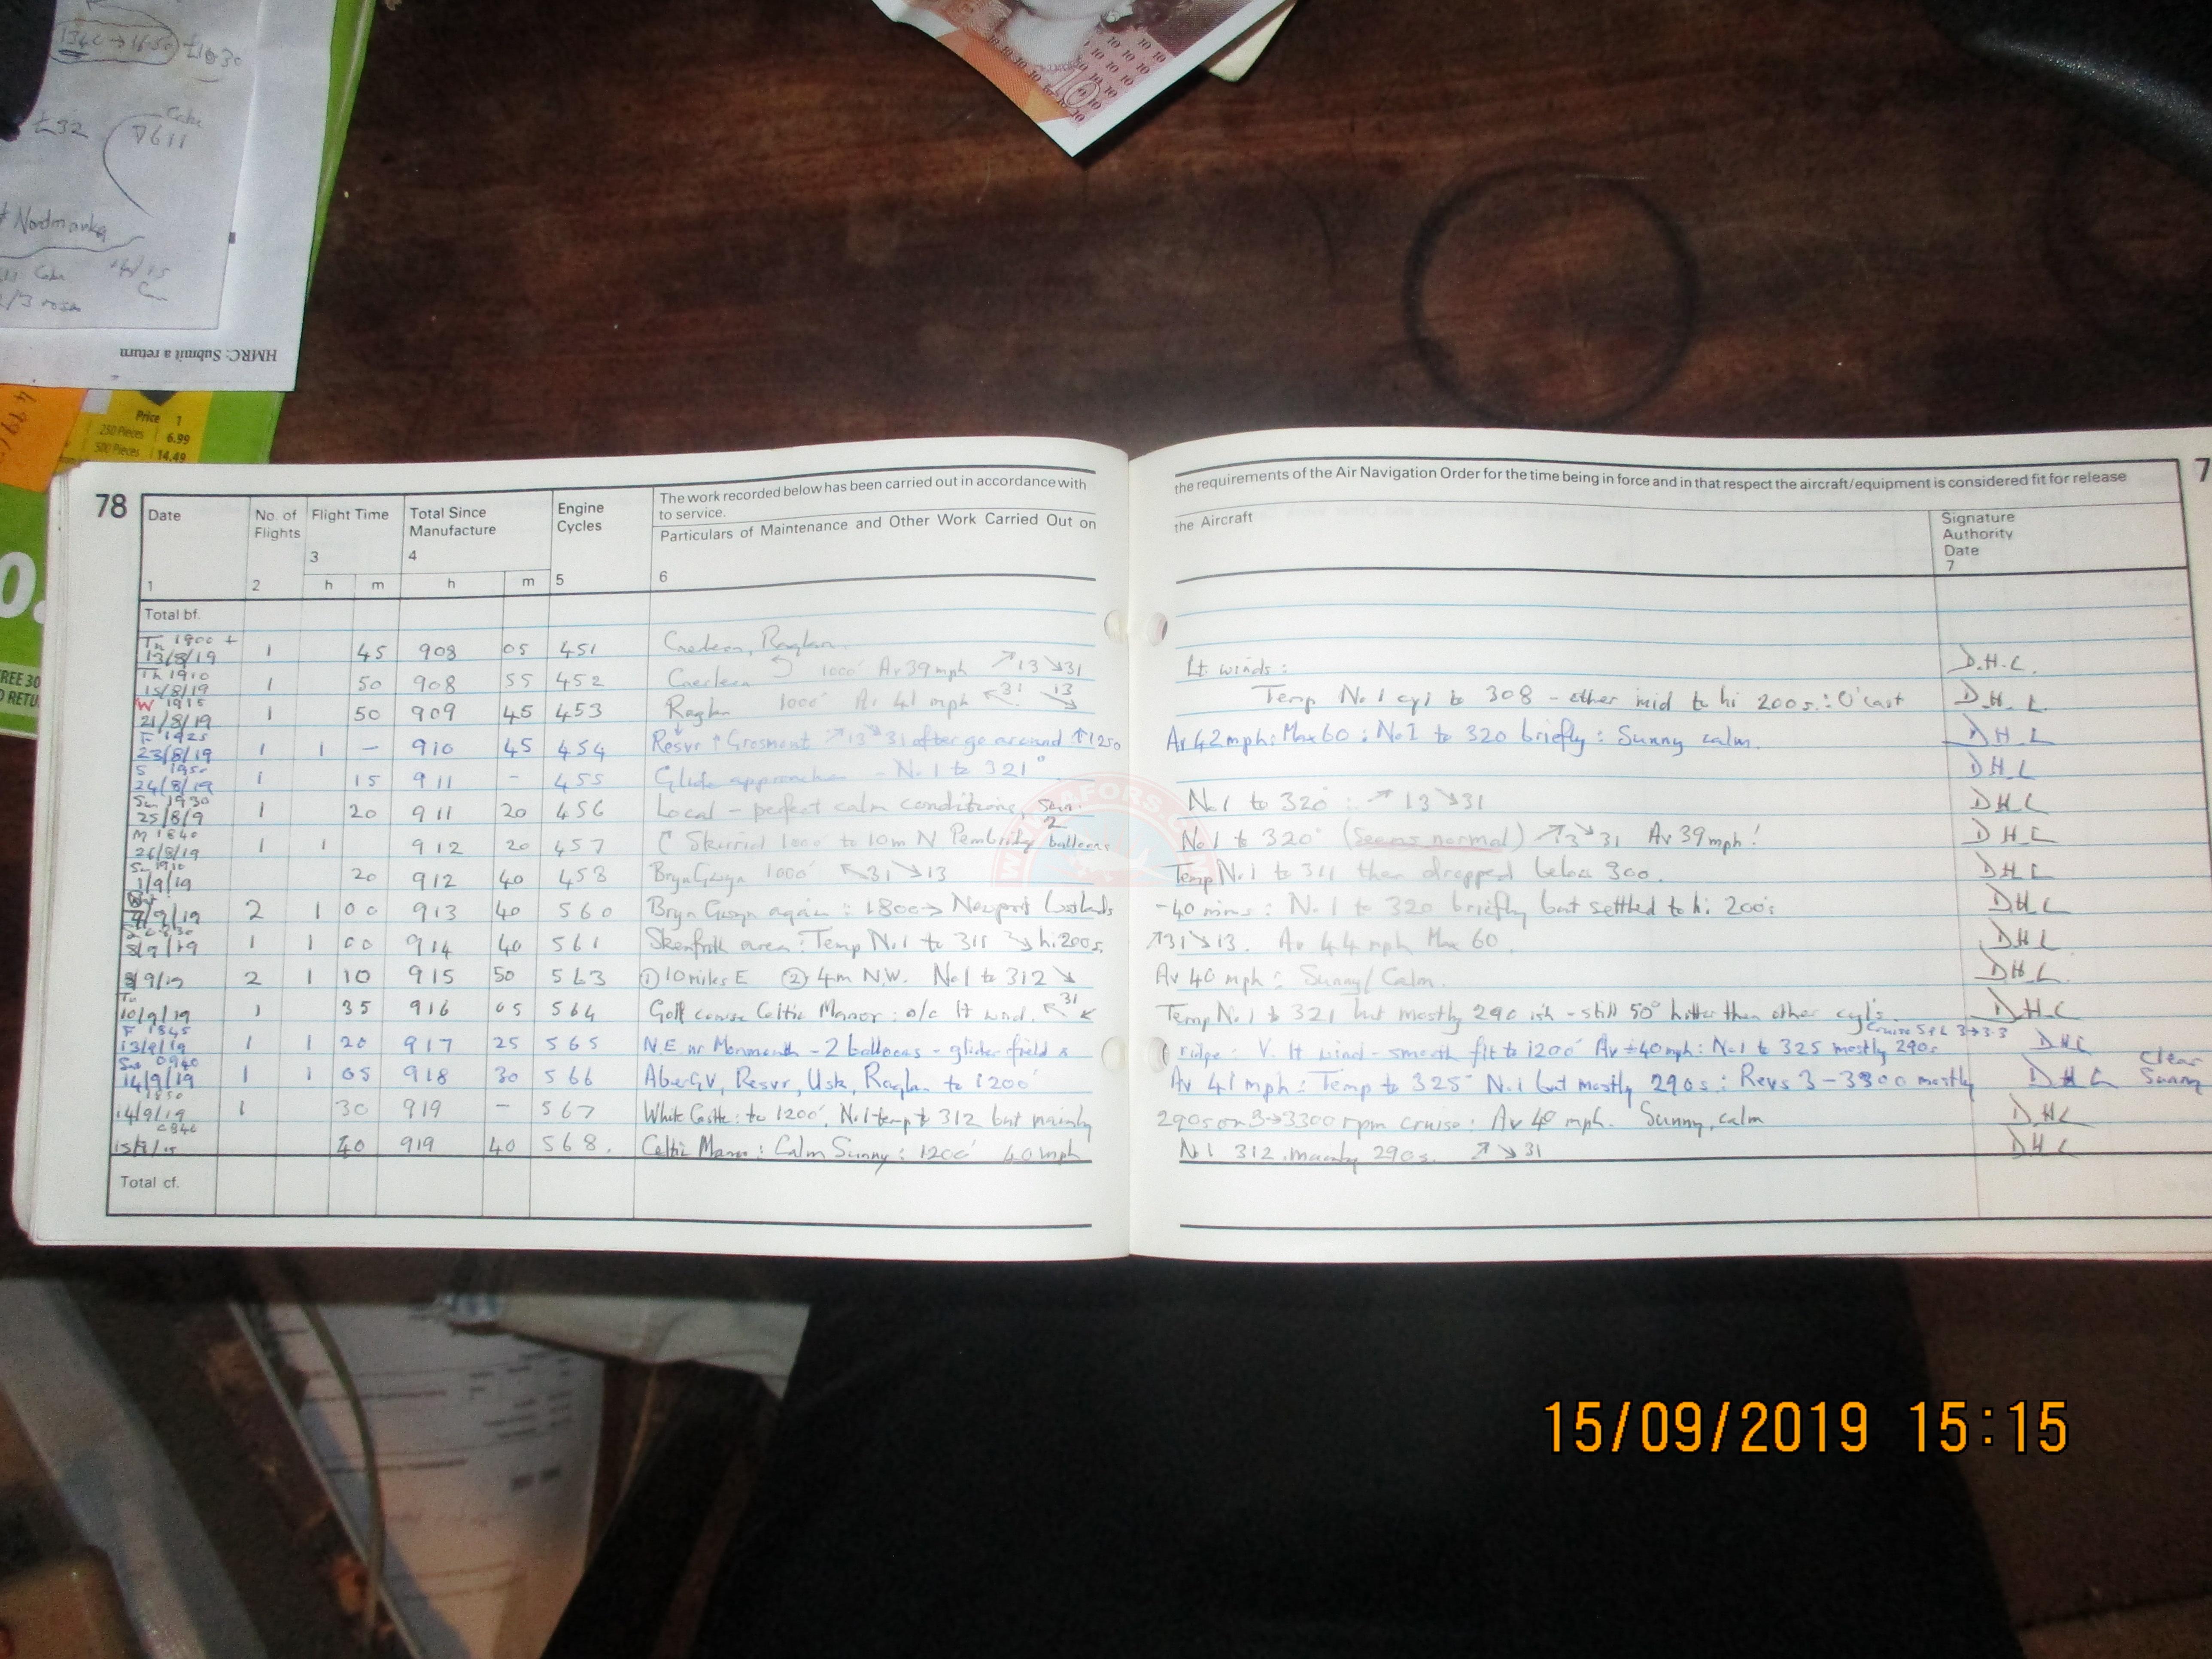 £1030
£32
Cake
7611
# Nordmanka
HMRC: Submit a return
Price 1
250 Pieces 6.99
500 Pieces 14.49
FREE 30
10
78
Date
No. of Flights
Flight Time
Total Since Manufacture
Engine Cycles
The work recorded below has been carried out in accordance with to service.
Particulars of Maintenance and Other Work Carried Out on
the requirements of the Air Navigation Order for the time being in force and in that respect the aircraft/equipment is considered fit for release
the Aircraft
Signature Authority Date
1 2 3 4 5 6 7
h m h m
Total bf.
Tu 1900 + 13/8/19 1 45 908 05 451 Caerleon, Raglan. Lt. winds: D.H.L.
Th 1910 15/8/19 1 50 908 55 452 Caerleon 1000' Av 39 mph ↗13 ↘31 Temp No.1 cyl to 308 - other mid to hi 200s.: O'cast D.H.L.
W 1915 21/8/19 1 50 909 45 453 Raglan 1000' Av 41 mph ↖31 ↘13
F 1925 23/8/19 1 1 - 910 45 454 Resvr ↑ Grosmont ↗13 ↘31 after go around ↑1250 Av 42 mph: Max 60: No.1 to 320 briefly: Sunny calm. DHL
S 1950 24/8/19 1 15 911 - 455 Glide approaches - No.1 to 321° DHL
Su 1930 25/8/9 1 20 911 20 456 Local - perfect calm conditions, sun. No.1 to 320°: ↗13 ↘31 DHL
M 1840 26/8/19 1 1 912 20 457 Skirrid 1000' to 10m N Pembridge 2 balloons No.1 to 320° (seems normal) ↗13 ↘31 Av 39 mph! DHL
Su 1910 1/9/19 20 912 40 458 Bryn Gwyn 1000' ↖31 ↘13 Temp No.1 to 311 then dropped below 300. DHL
/9/19 2 1 00 913 40 560 Bryn Gwyn again: 1800→ Newport Wetlands -40 mins: No.1 to 320 briefly but settled to hi 200's DHL
/9/19 1 1 00 914 40 561 Skenfrith area: Temp No.1 to 315 ↘ hi 200s. ↗31 ↘13. Av 44 mph Max 60. DHL
/9/19 2 1 10 915 50 563 ① 10 miles E ② 4m NW. No.1 to 312 ↘ Av 40 mph: Sunny/Calm. DHL
Tu 10/9/19 1 35 916 05 564 Golf course Celtic Manor: o/c lt wind. ↖31 ↙ Temp No.1 to 321 but mostly 290 ish - still 50° hotter than other cyls. DHL
F 1845 13/9/19 1 1 20 917 25 565 N.E. nr Monmouth - 2 balloons - glider field & ridge: V. lt wind - smooth flt to 1200' Av ±40 mph: No.1 to 325 mostly 290s Cruise 3→3.3 DHL
Sat 0940 14/9/19 1 1 05 918 30 566 AberGV, Resvr, Usk, Raglan to 1200' Av 41 mph: Temp to 325° No.1 but mostly 290s: Revs 3-3300 mostly DHL Clear Sunny
1850 14/9/19 1 30 919 - 567 White Castle: to 1200'. No.1 temp to 312 but mainly 290s on 3→3300 rpm cruise: Av 40 mph. Sunny, calm DHL
0840 40 919 40 568. Celtic Manor: Calm Sunny: 1200' 40 mph No.1 312. mainly 290s. ↗ ↘31 DHL
Total cf.
15/09/2019 15:15